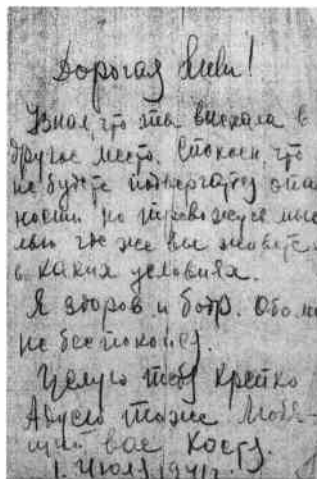 Дорогая Яиви!
Узнал, что ты выехала в
другое место. Спокоен, что
не будете подвергатся опас
ности но тревожуся мыс
лью где же вы живете
в каких условиях.
Я здоров и бодр. Обо мне
не беспокойся.
Целую тебя крепко
также Любя-
щий вас Костя.
1. Июля 1941г.